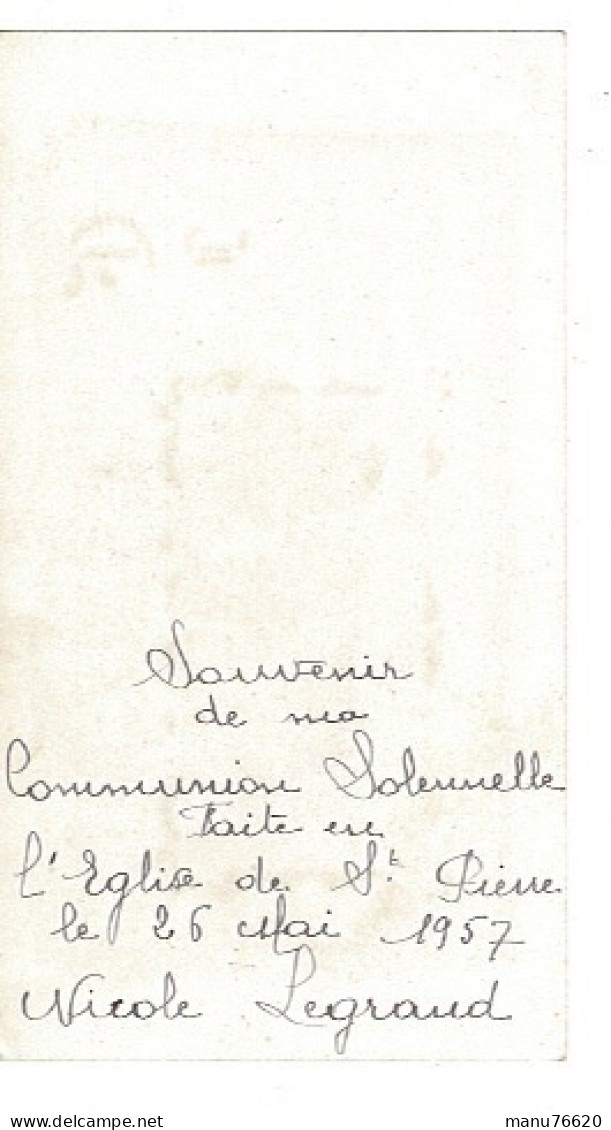 Souvenir
de ma
Communion Solennelle
Faite en
l'Eglise de St. Pierre
le 26 Mai 1957
Nicole Legrand
www.delcampe.net
manu76620